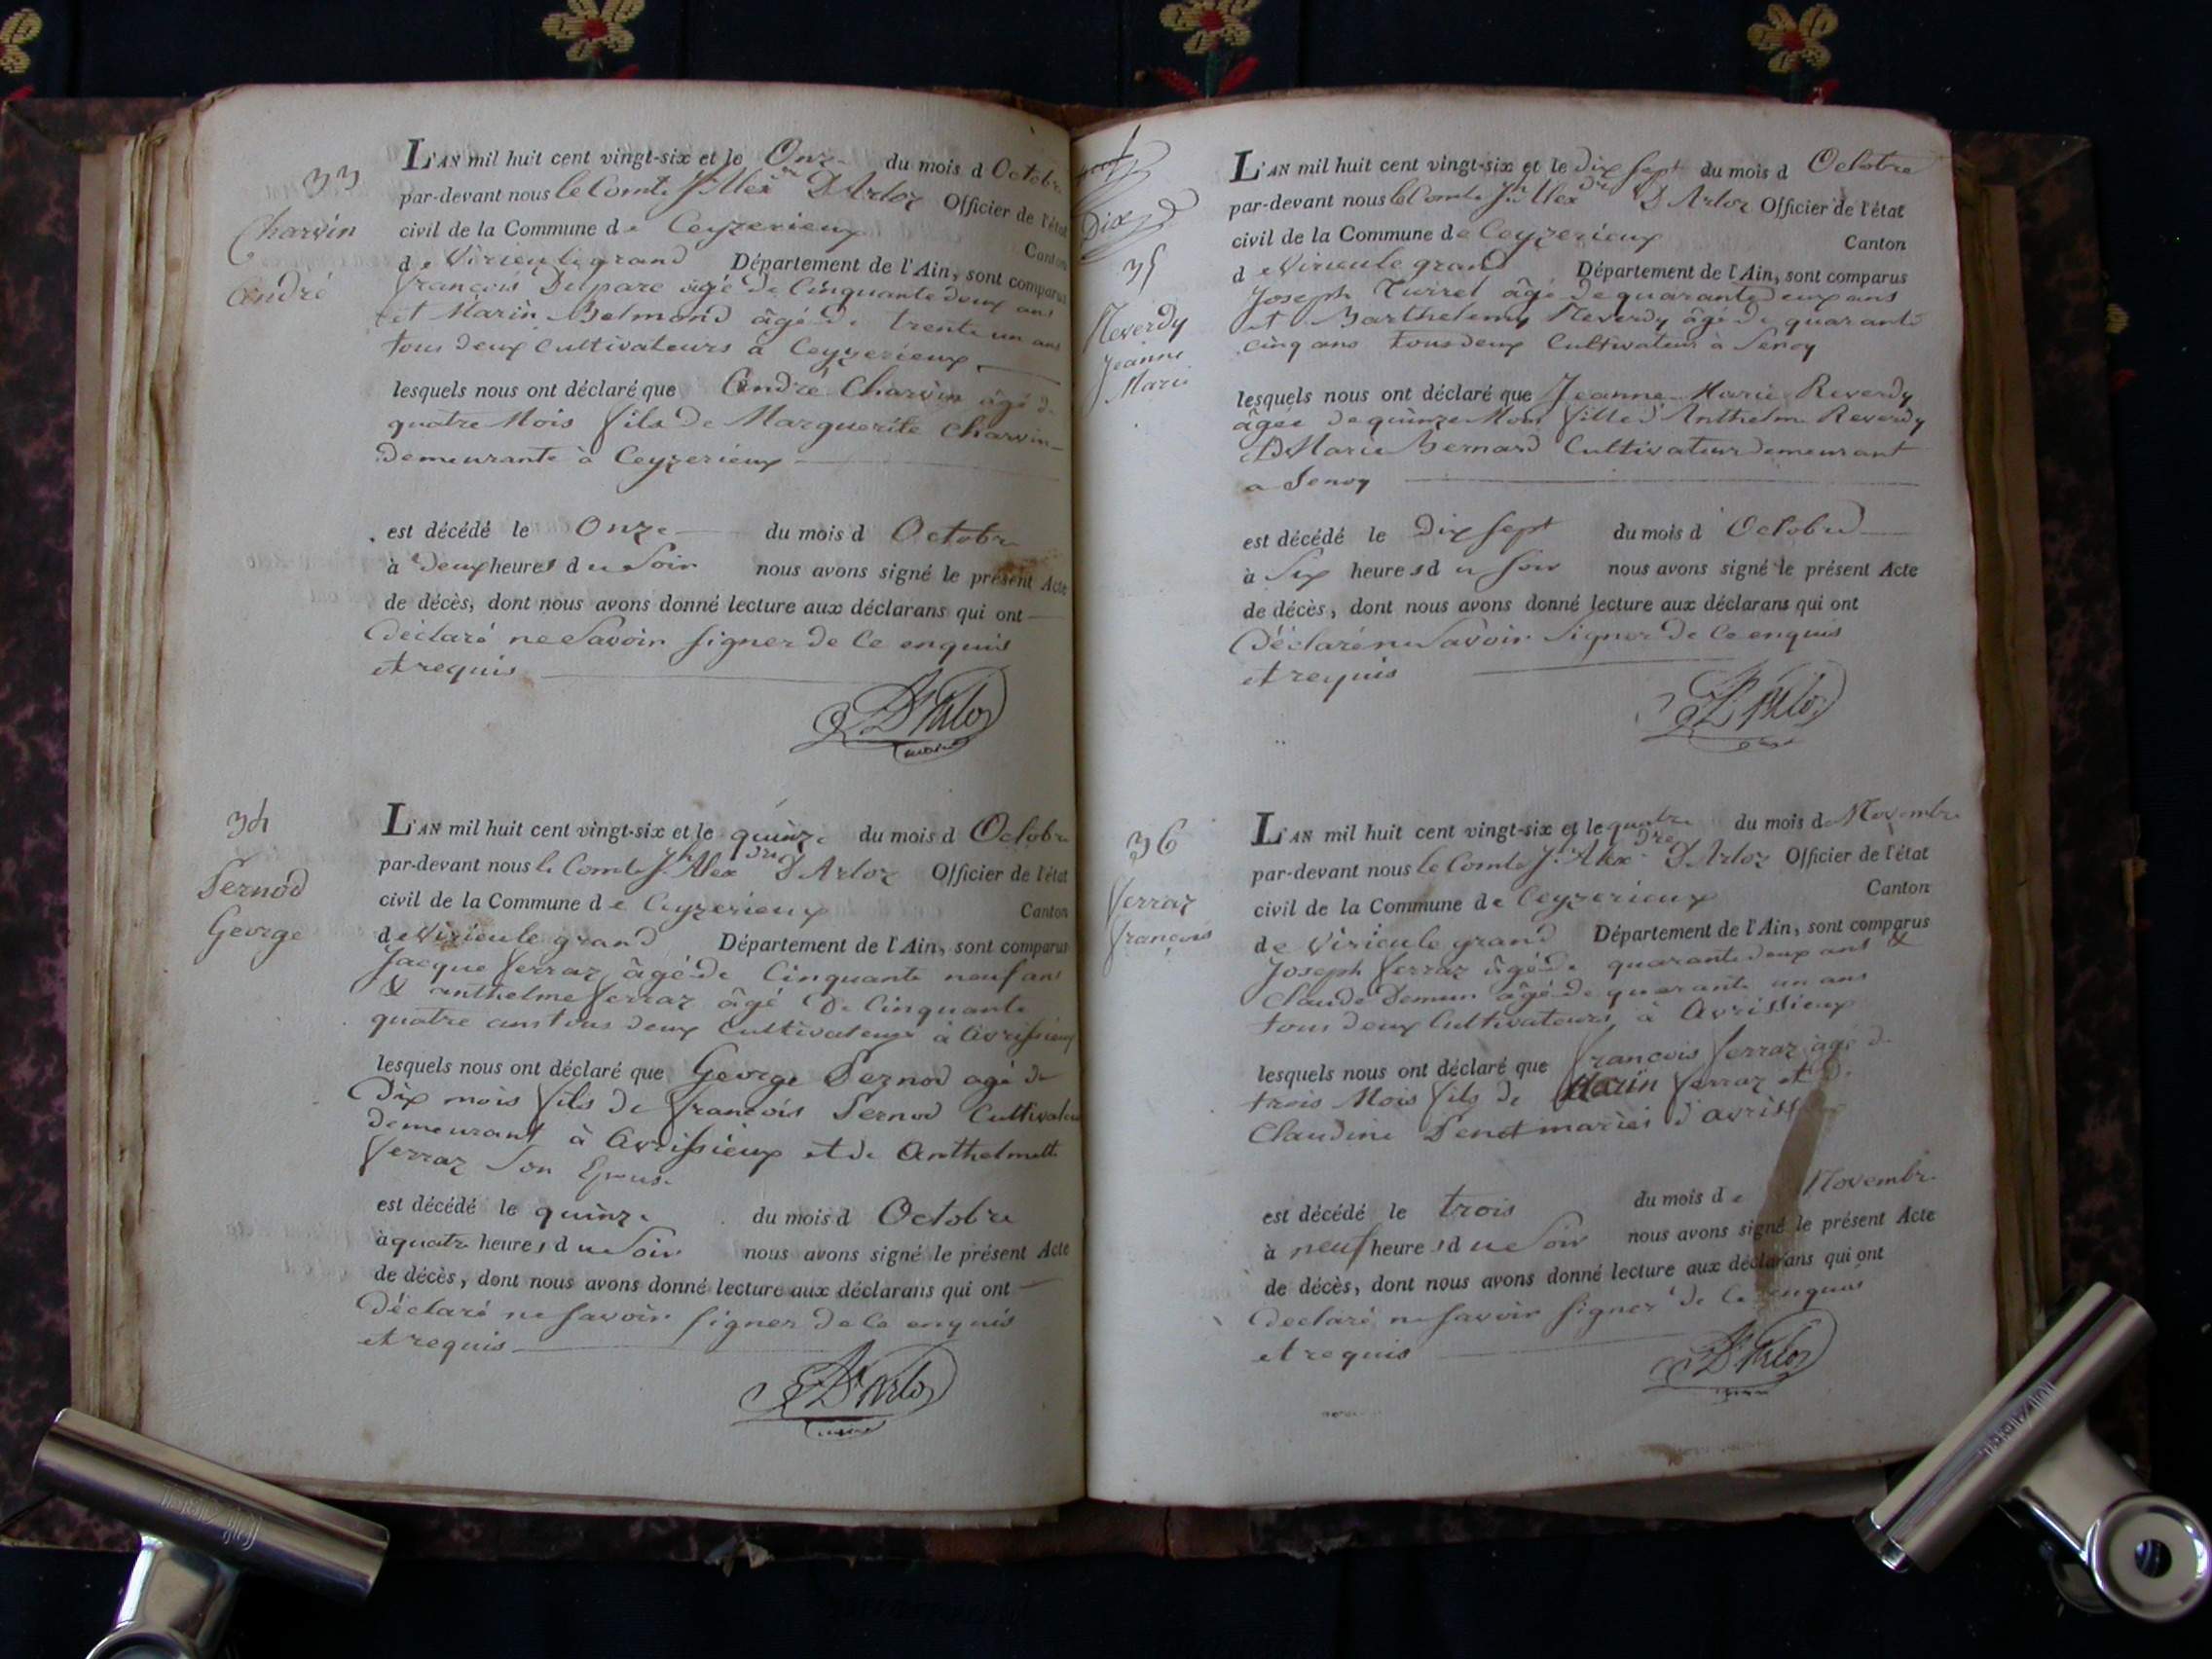 33
Charvin
André
L'AN mil huit cent vingt-six et le Onze du mois d Octobre
par-devant nous le Comte Alex D'Arloz Officier de l'état
civil de la Commune de Ceyzerieux Canton
de Virieu le grand Département de l'Ain, sont comparus
françois Dupare âgé de Cinquante deux ans
et Marin Belmond âgé de trente un ans
tous deux Cultivateurs à Ceyzerieux
lesquels nous ont déclaré que André Charvin âgé de
quatre Mois fils de Marguerite Charvin
demeurante à Ceyzerieux
est décédé le Onze du mois d Octobre
à Deux heures du Soir nous avons signé le présent Acte
de décès, dont nous avons donné lecture aux déclarans qui ont
Déclaré ne Savoir Signer de Ce enquis
et requis
D'Arloz
34
Pernod
George
L'AN mil huit cent vingt-six et le quinze du mois d Octobre
par-devant nous le Comte Jh Alexdre D'Arloz Officier de l'état
civil de la Commune de Ceyzerieux Canton
de Virieu le grand Département de l'Ain, sont comparus
Jacque ferraz âgé de Cinquante neuf ans
& anthelme ferraz âgé De Cinquante
quatre ans tous deux Cultivateurs à Avrissieux
lesquels nous ont déclaré que George Pernod agé de
Dix mois fils de françois Pernod Cultivateur
demeurant à Avrissieux et de Anthelmette
ferraz Son Epouse
est décédé le quinze du mois d Octobre
à quatre heures du Soir nous avons signé le présent Acte
de décès, dont nous avons donné lecture aux déclarans qui ont
Déclaré ne Savoir Signer de Ce enquis
et requis
D'Arloz
Dix
35
Reverdy
Jeanne
Marie
L'AN mil huit cent vingt-six et le dix Sept du mois d Octobre
par-devant nous le Comte Jh Alexdre D'Arloz Officier de l'état
civil de la Commune de Ceyzerieux Canton
de Virieu le grand Département de l'Ain, sont comparus
Joseph Turrel âgé de quarante deux ans
et Barthelemy Reverdy âgé de quarante
cinq ans tous deux Cultivateur à Senoy
lesquels nous ont déclaré que Jeanne Marie Reverdy
âgée de quinze Mois fille d'Anthelme Reverdy
& D Marie Bernard Cultivateur demeurant
a Senoy
est décédé le Dix Sept du mois d Octobre
à Six heures du Soir nous avons signé le présent Acte
de décès, dont nous avons donné lecture aux déclarans qui ont
Déclaré ne Savoir Signer de Ce enquis
et requis
D'Arloz
36
ferraz
françois
L'AN mil huit cent vingt-six et le quatre du mois de Novembre
par-devant nous le Comte Jh Alexdre D'Arloz Officier de l'état
civil de la Commune de Ceyzerieux Canton
de Virieu le grand Département de l'Ain, sont comparus
Joseph ferraz âgé de quarante deux ans &
Claude Demun âgé de quarante un ans
tous deux Cultivateurs à Avrissieux
lesquels nous ont déclaré que francois ferraz agé de
trois Mois fils de Marin ferraz et de
Claudine Penet mariés d'avriss
est décédé le trois du mois de Novembre
à neuf heures du Soir nous avons signé le présent Acte
de décès, dont nous avons donné lecture aux déclarans qui ont
Declaré ne Savoir Signer de Ce enquis
et requis
D'Arloz